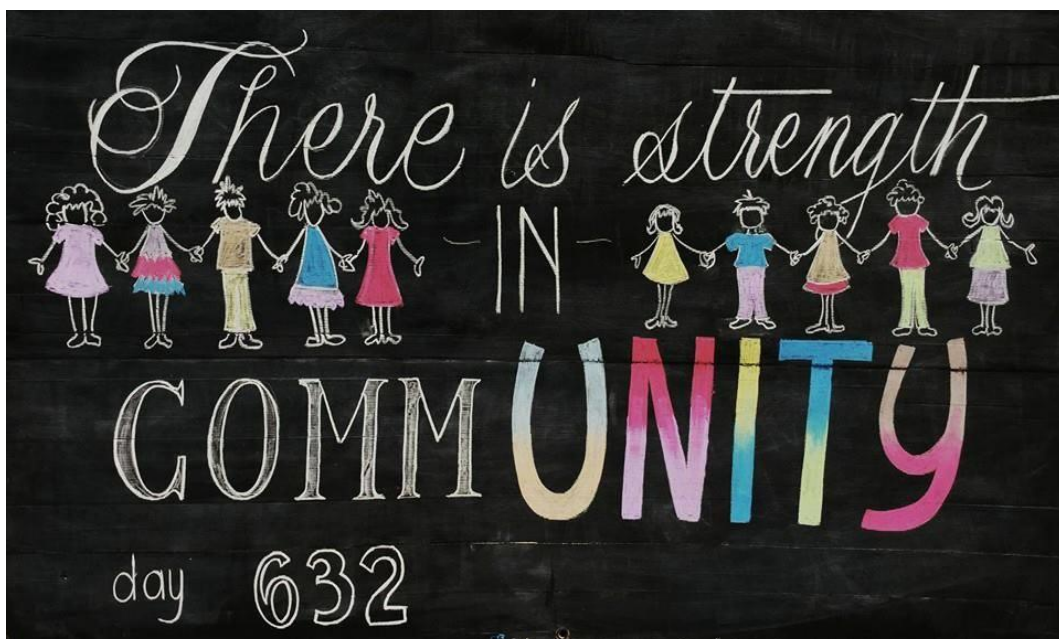 There is strength
IN
COMMUNITY
day 632